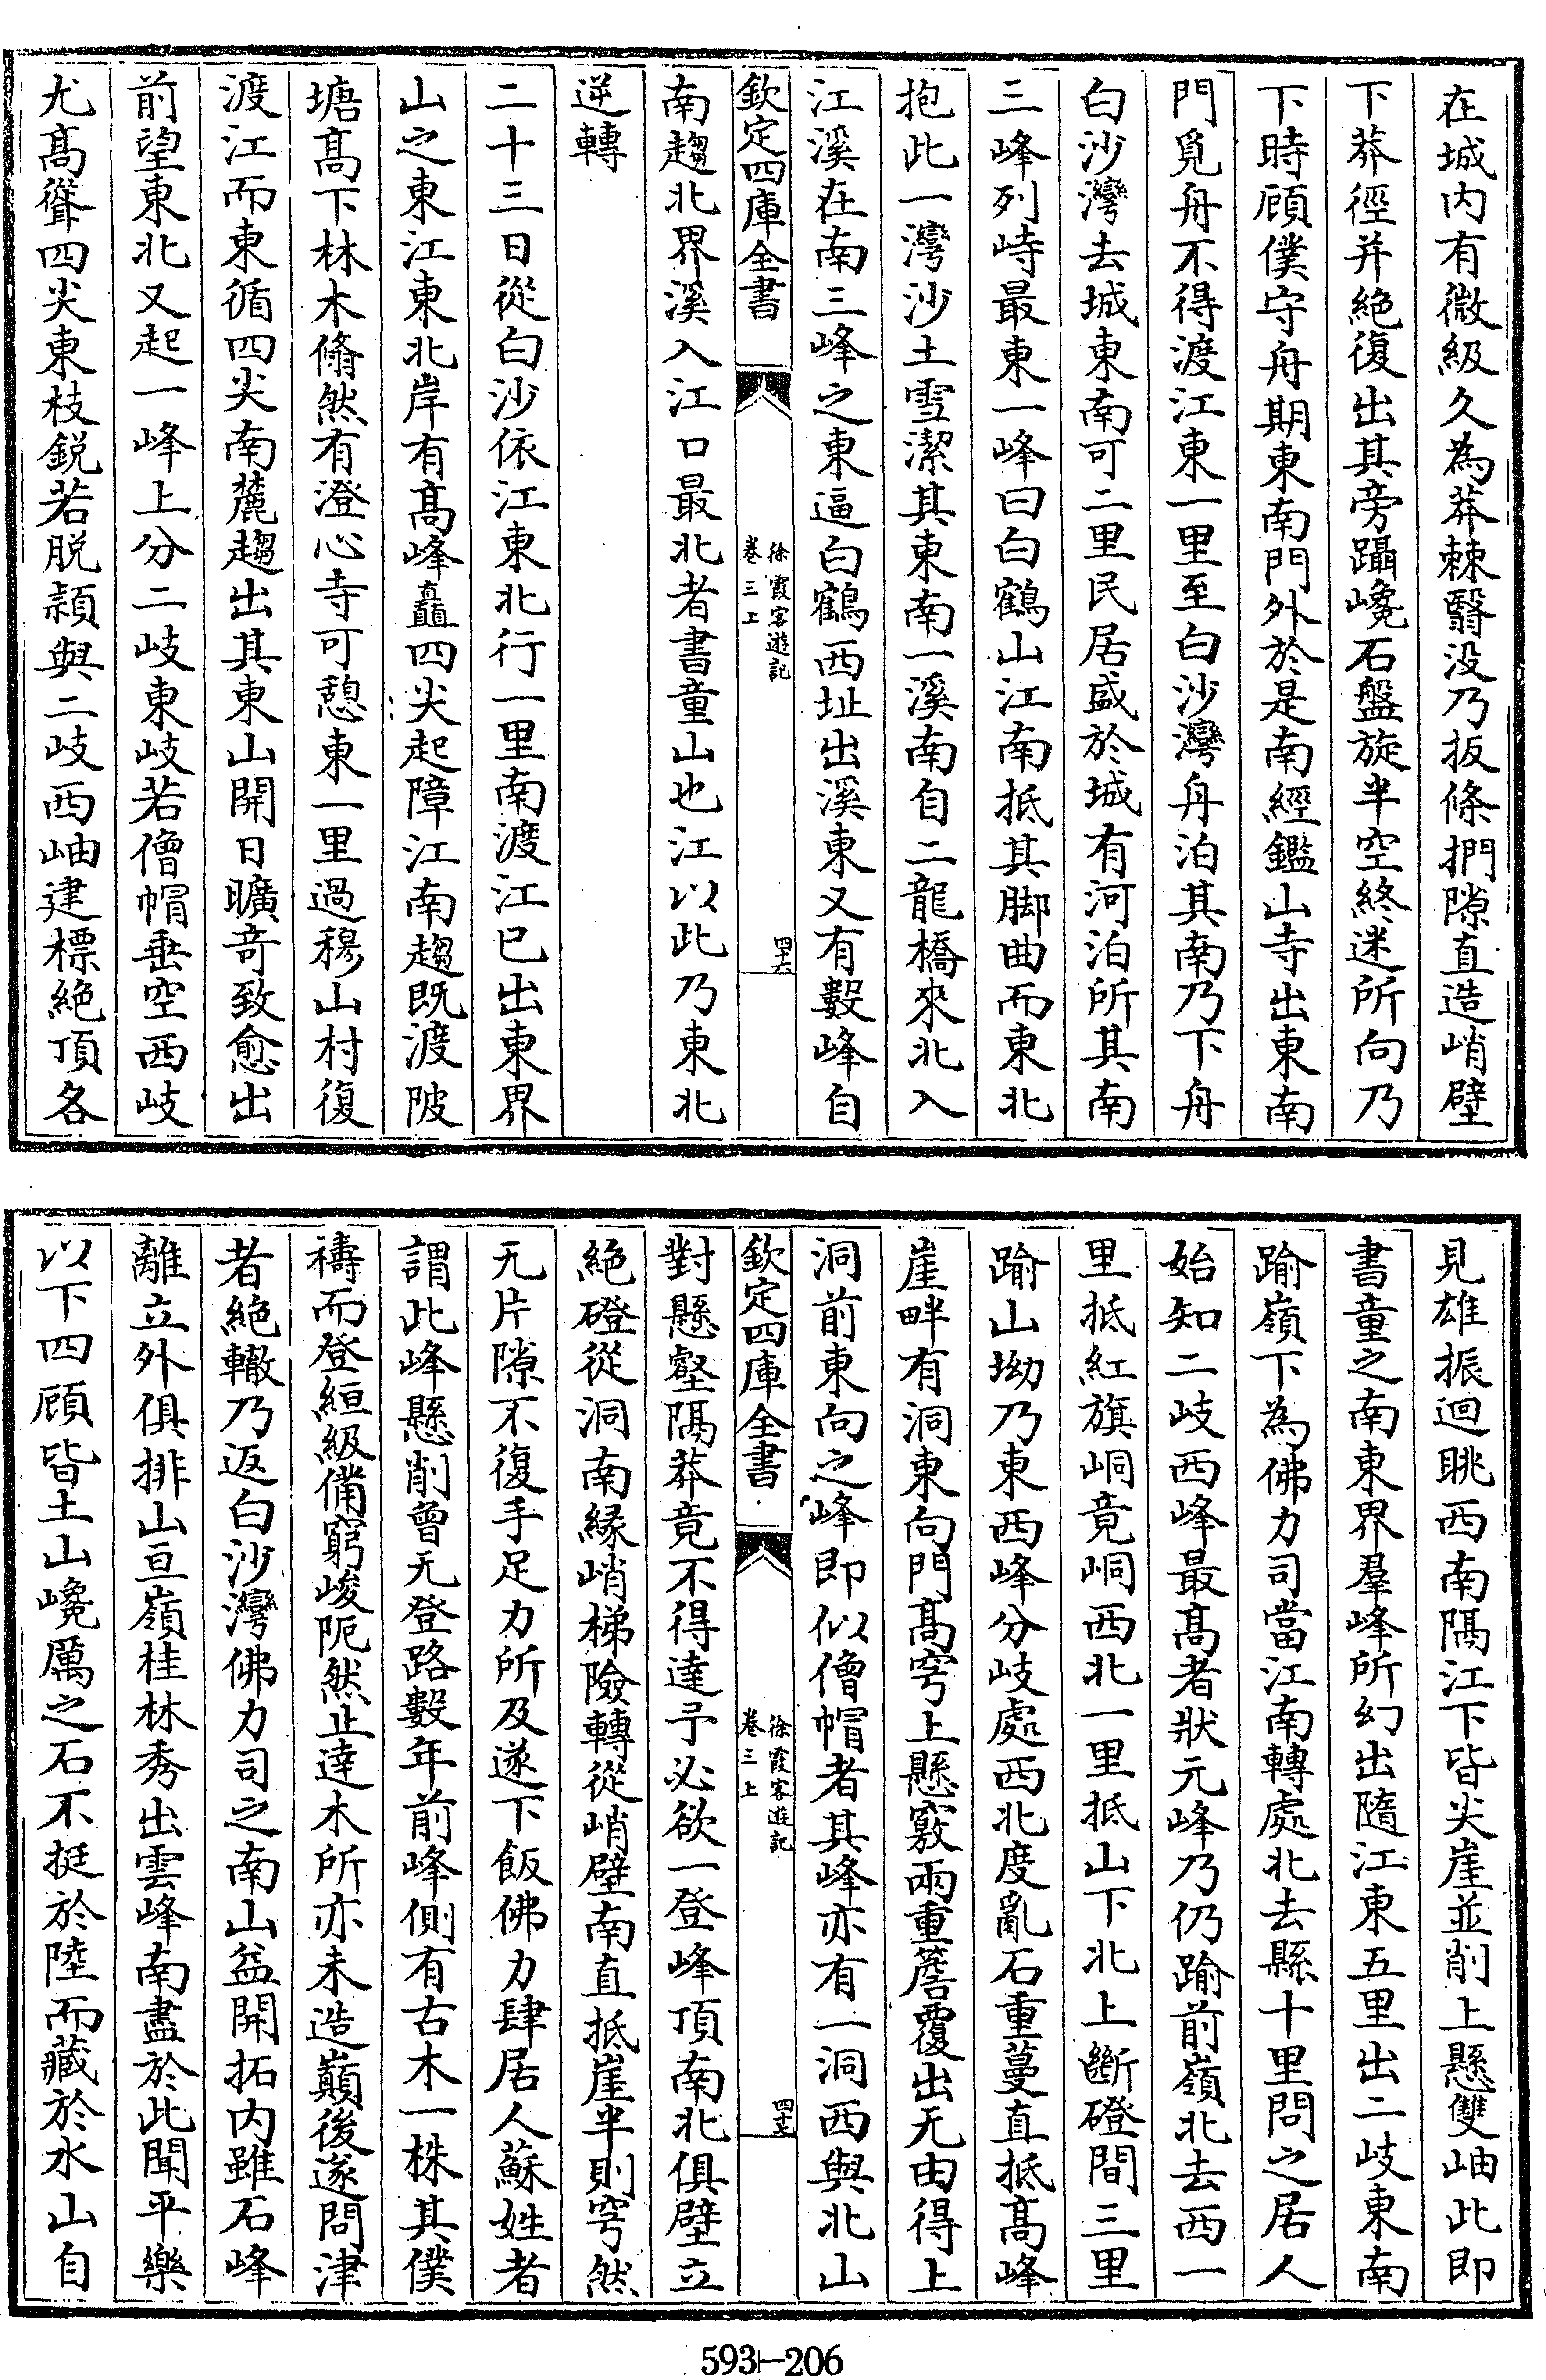 在城内有微級久為莽棘翳没乃扳條捫隙直造峭壁
下莽徑并絶復出其旁躡巉石盤旋半空終迷所向乃
下時顧僕守舟期東南門外於是南經鑑山寺出東南
門覓舟不得渡江東一里至白沙灣舟泊其南乃下舟
白沙灣去城東南可二里民居盛於城有河泊所其南
三峰列峙最東一峰曰白鶴山江南抵其脚曲而東北
抱此一灣沙土雪潔其東南一溪南自二龍橋來北入
江溪在南三峰之東逼白鶴西址出溪東又有數峰自
欽定四庫全書
徐霞客遊記
卷三上
四十六
南趨北界溪入江口最北者書童山也江以此乃東北
逆轉
二十三日從白沙依江東北行一里南渡江已出東界
山之東江東北岸有髙峰矗四尖起障江南趨既渡陂
塘髙下林木翛然有澄心寺可憩東一里過穆山村復
渡江而東循四尖南麓趨出其東山開日曠竒致愈出
前望東北又起一峰上分二岐東岐若僧帽垂空西岐
尤髙聳四尖東枝鋭若脱頴與二岐西岫建標絶頂各
見雄振迴眺西南隔江下皆尖崖並削上懸雙岫此即
書童之南東界羣峰所幻出隨江東五里出二岐東南
踰嶺下為佛力司當江南轉處北去縣十里問之居人
始知二岐西峰最髙者狀元峰乃仍踰前嶺北去西一
里抵紅旗峒竟峒西北一里抵山下北上斷磴間三里
踰山坳乃東西峰分岐處西北度亂石重蔓直抵髙峰
崖畔有洞東向門髙穹上懸竅兩重簷覆出无由得上
洞前東向之峰即似僧帽者其峰亦有一洞西與北山
欽定四庫全書
徐霞客遊記
卷三上
四十七
對懸壑隔莽竟不得達予必欲一登峰頂南北俱壁立
絶磴從洞南緣峭梯險轉從峭壁南直抵崖半則穹然
无片隙不復手足力所及遂下飯佛力肆居人蘇姓者
謂此峰懸削曾无登路數年前峰側有古木一株其僕
禱而登縆級備窮峻阨然止達木所亦未造巔後遂問津
者絶轍乃返白沙灣佛力司之南山益開拓内雖石峰
離立外俱排山亘嶺桂林秀出雲峰南盡於此聞平樂
以下四顧皆土山巉厲之石不挺於陸而藏於水山自
593-206